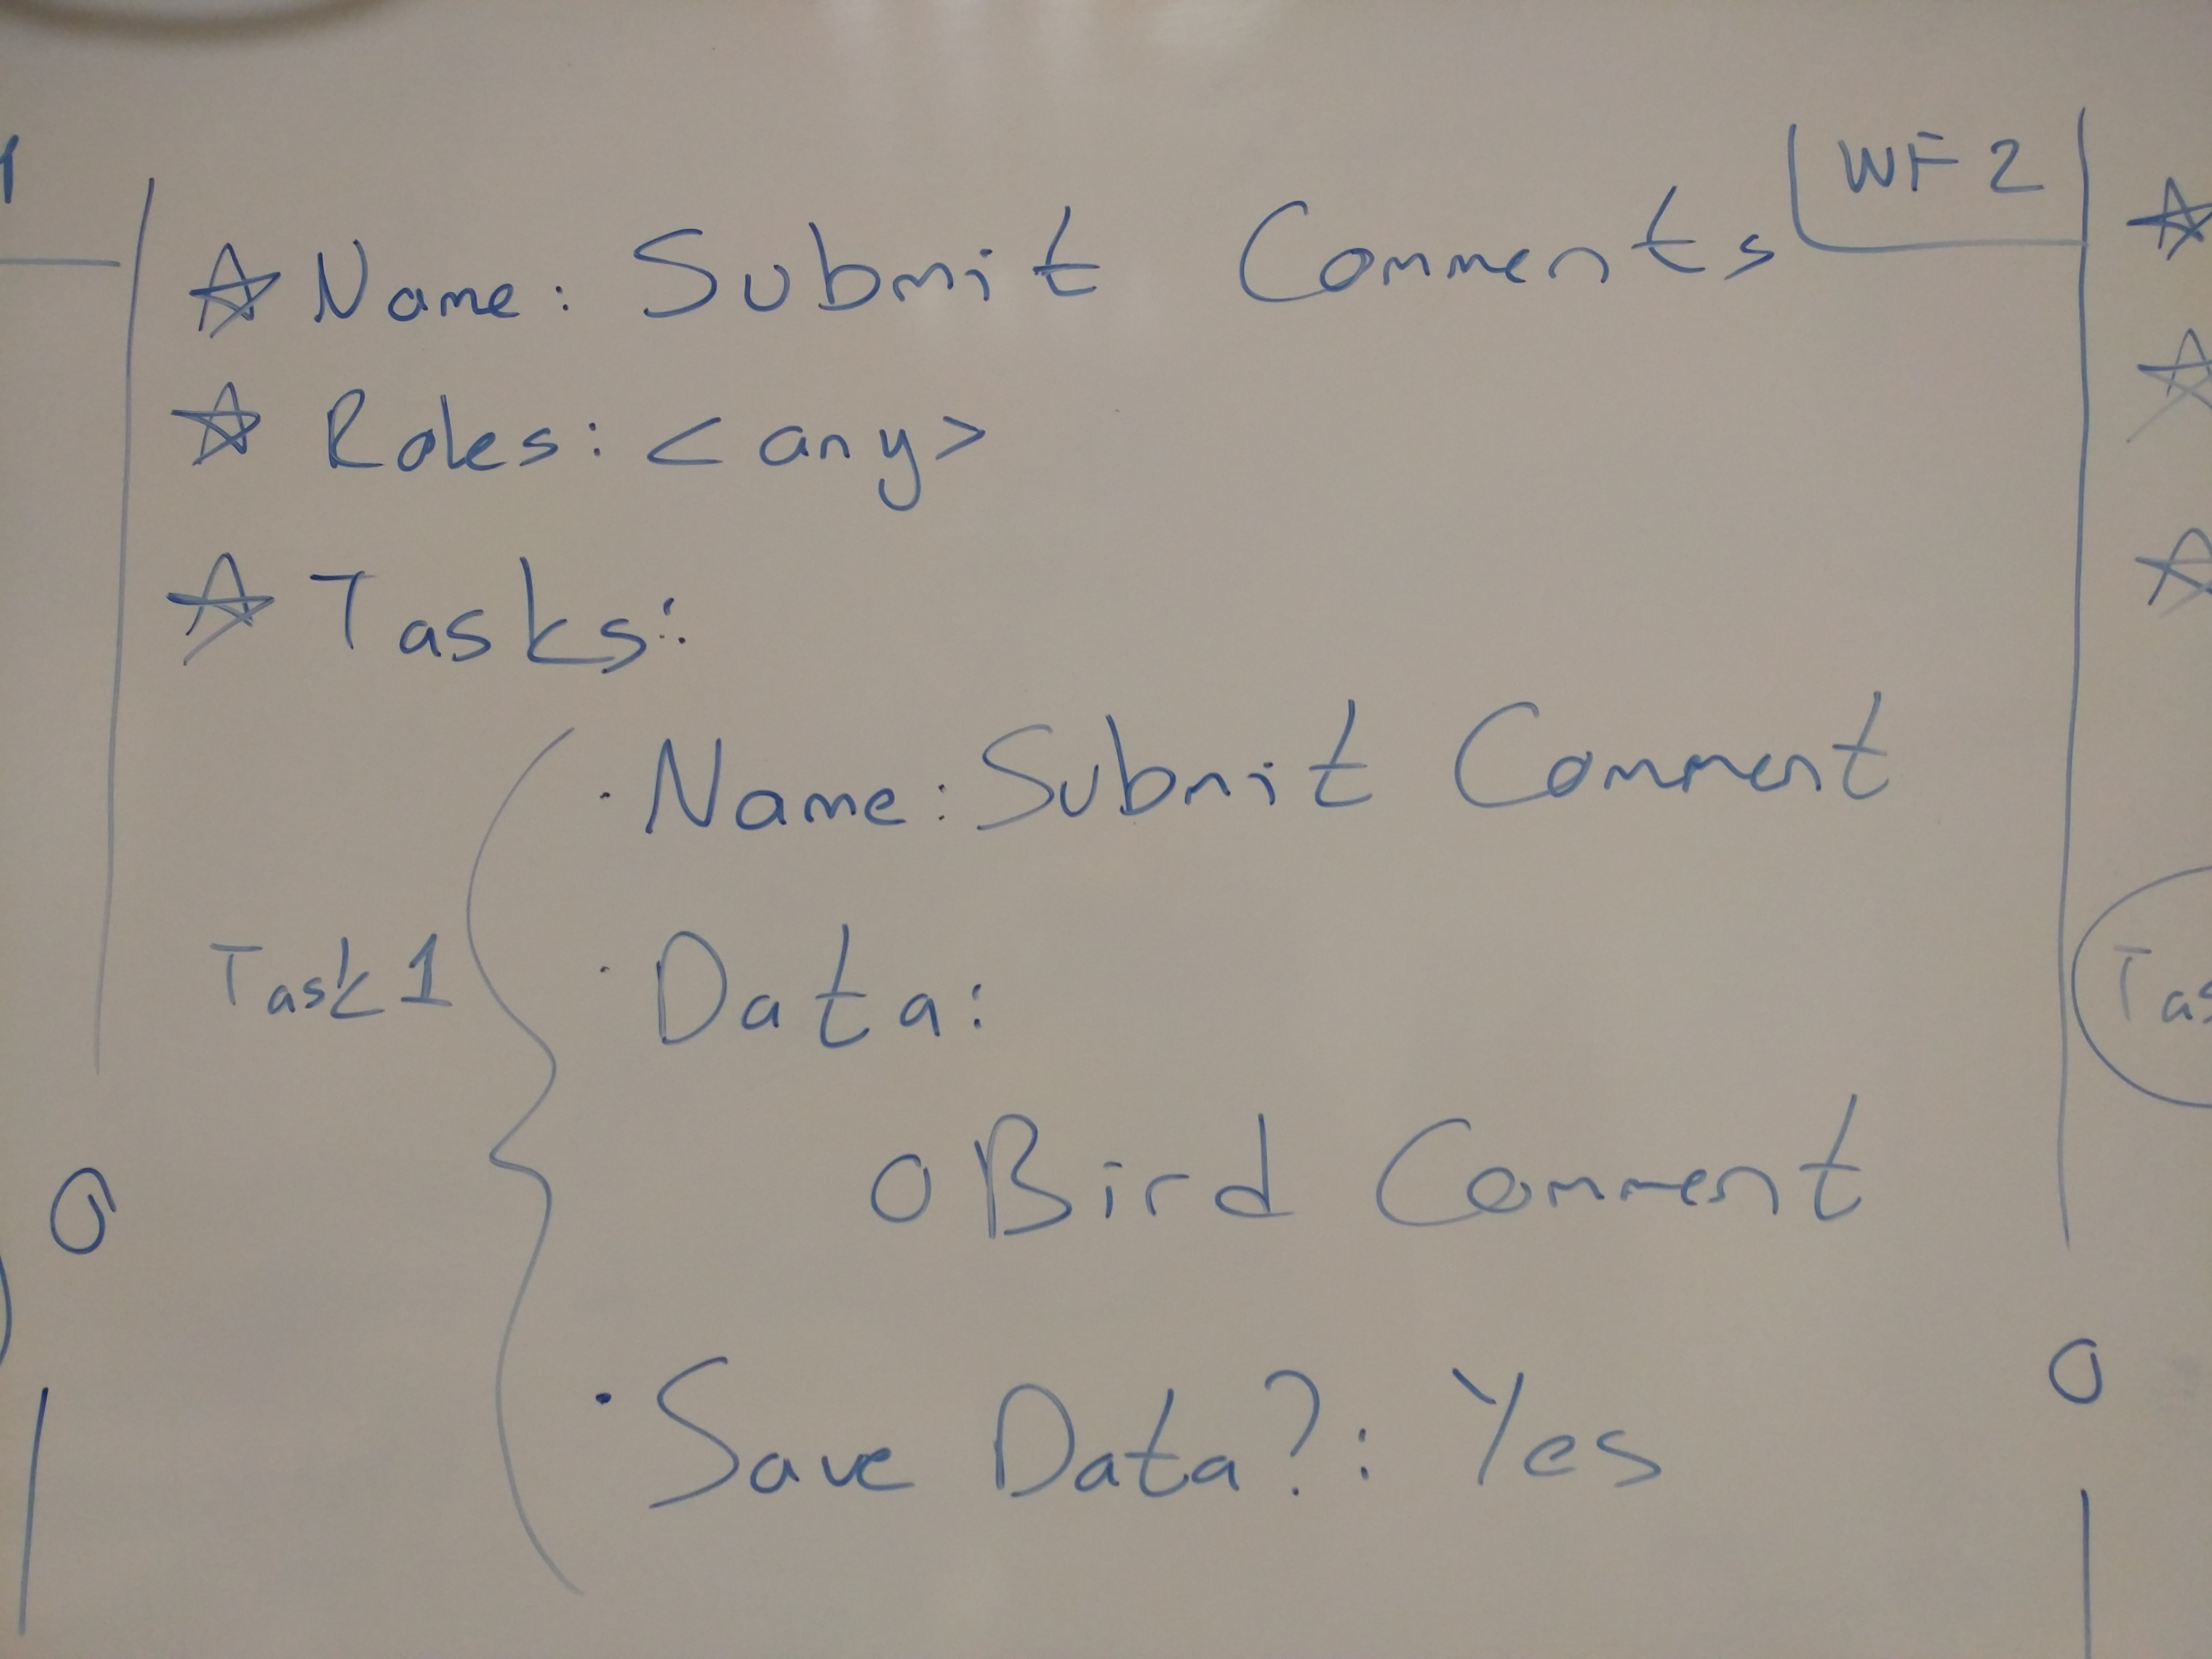 WF 2
☆ Name: Submit Comments
☆ Roles: <any>
☆ Tasks:
· Name: Submit Comment
Task 1
· Data:
O Bird Comment
· Save Data?: Yes